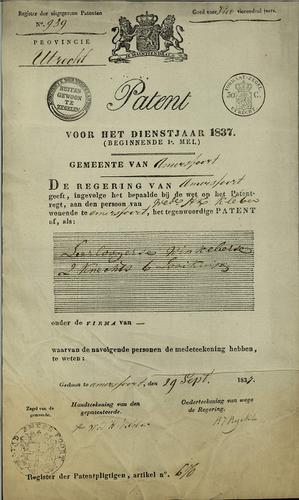 Register der uitgegeven Patenten
N.° 939
Goed voor vierendeel jaars.
PROVINCIE
Utrecht
BUITEN
GEWOON
TE
ZEGELEN
JE MAINTIENDRAI
50 C.
UTRECHT
Patent
VOOR HET DIENSTJAAR 1837.
(BEGINNENDE 1.e MEI.)
GEMEENTE VAN Amersfoort
DE REGERING VAN Amersfoort
geeft, ingevolge het bepaalde bij de wet op het Patent-
regt, aan den persoon van Kleber
wonende te Amersfoort, het tegenwoordige PATENT
of, als:
Leerlooyers Winkelierse
2 Knechts 6
onder de FIRMA van —
waarvan de navolgende personen de medeteekening hebben,
te weten:
Gedaan te Amersfoort, den 29 Sept. 1837.
Zegel van de
gemeente.
Handteekening van den
gepatenteerde.
Onderteekening van wege
de Regering.
Register der Patentpligtigen, artikel n.° 676